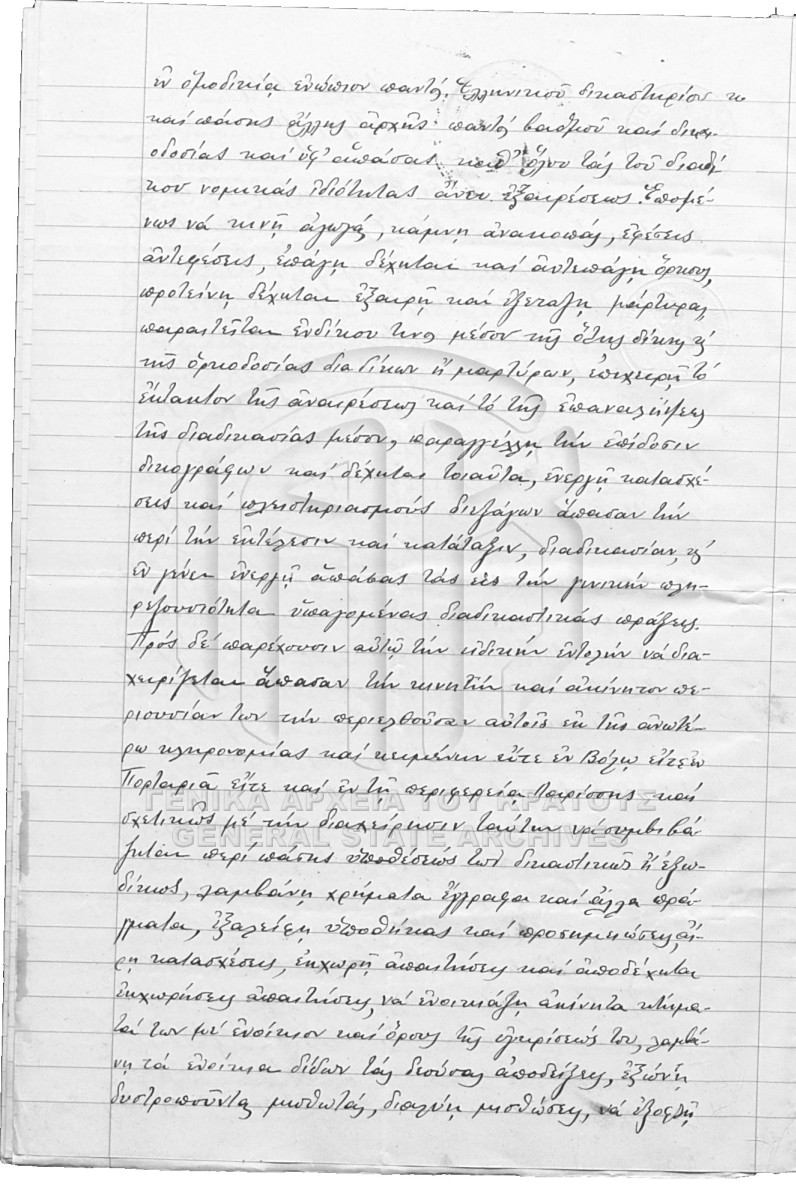 ἐν ὁμοδικίᾳ ἐνώπιον παντὸς Ἑλληνικοῦ δικαστηρίου
καὶ πάσης ἄλλης ἀρχῆς παντὸς βαθμοῦ καὶ δικαι-
οδοσίας καὶ ὑφ' ἁπάσας καθ' ὅλου τὰς τοῦ διαδί-
κου νομικὰς ἰδιότητας ἄνευ ἐξαιρέσεως. Ἑπομέ-
νως νὰ κινῇ ἀγωγάς, κάμνῃ ἀνακοπάς, ἐφέσεις
ἀντεφέσεις, ἐπάγῃ δέχηται καὶ ἀντεπάγῃ ὅρκους,
προτείνῃ δέχηται ἐξαιρῇ καὶ ἐξετάζῃ μάρτυρας,
παραιτεῖται ἐνδίκου τινος μέσου τῆς ὅλης δίκης κ'
τῆς ὁρκοδοσίας διαδίκων ἢ μαρτύρων, ἐπιχειρῇ τὸ
ἔκτακτον τῆς ἀναιρέσεως καὶ τὸ τῆς ἐπαναλήψεως
τῆς διαδικασίας μέσον, παραγγέλλῃ τὴν ἐπίδοσιν
δικογράφων καὶ δέχηται τοιαῦτα, ἐνεργῇ κατασχέ-
σεις καὶ πλειστηριασμοὺς διεξάγων ἅπασαν τὴν
περὶ τὴν ἐκτέλεσιν καὶ κατάταξιν, διαδικασίαν, κ'
ἐν γένει ἐνεργῇ ἁπάσας τὰς εἰς τὴν γενικὴν πλη-
ρεξουσιότητα ὑπαγομένας διαδικαστικὰς πράξεις.
Πρὸς δὲ παρέχουσιν αὐτῷ τὴν εἰδικὴν ἐντολὴν νὰ δια-
χειρίζεται ἅπασαν τὴν κινητὴν καὶ ἀκίνητον πε-
ριουσίαν των τὴν περιελθοῦσαν αὐτοῖς ἐκ τῆς ἀνωτέ-
ρω κληρονομίας καὶ κειμένην εἴτε ἐν Βόλῳ εἴτε ἐν
Πορταριᾷ εἴτε καὶ ἐν τῇ περιφερείᾳ Λαρίσσης καὶ
σχετικῶς μὲ τὴν διαχείρησιν ταύτην νὰ συμβιβά-
ζηται περὶ πάσης ὑποθέσεώς των δικαστικῶς ἢ ἐξω-
δίκως, λαμβάνῃ χρήματα ἔγγραφα καὶ ἄλλα πρά-
γματα, ἐξαλείφῃ ὑποθήκας καὶ προσημειώσεις, αἴ-
ρῃ κατασχέσεις, ἐκχωρῇ ἀπαιτήσεις καὶ ἀποδέχηται
ἐκχωρήσεις ἀπαιτήσεις, νὰ ἐνοικιάζῃ ἀκίνητα κτήμα-
τά των μὲ ἐνοίκιον καὶ ὅρους τῆς ἐγκρίσεώς του, λαμβά-
νῃ τὰ ἐνοίκια δίδων τὰς δεούσας ἀποδείξεις, ἐξώνῃ
δυστροποῦντας μισθωτάς, διαλύῃ μισθώσεις, νὰ ἐξοφλῇ
ΓΕΝΙΚΑ ΑΡΧΕΙΑ ΤΟΥ ΚΡΑΤΟΥΣ
GENERAL STATE ARCHIVES